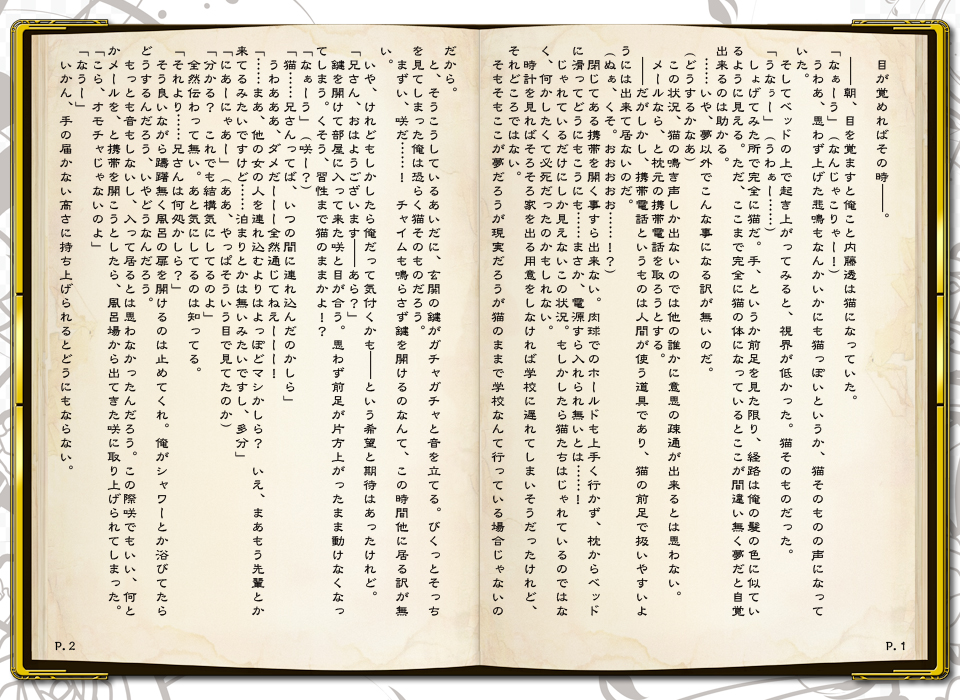 目が覚めればその時――。
「なぁーう」（なんじゃこりゃー！）
――朝、目を覚ますと俺こと内藤透は猫になっていた。
うわあ、思わず上げた悲鳴もなんかいかにも猫っぽいというか、猫そのものの声になって
いた。
そしてベッドの上で起き上がってみると、視界が低かった。猫そのものだった。
「うなぅー」（うわぁー……）
しょげてみた所で完全に猫だ。手、というか前足を見た限り、経路は俺の髪の色に似てい
るように見える。ただ、ここまで完全に猫の体になっているとここが間違い無く夢だと自覚
出来るのは助かる。
……いや、夢以外でこんな事になる訳が無いのだ。
（どうするかなあ）
この状況、猫の鳴き声しか出ないのでは他の誰かに意思の疎通が出来るとは思わない。
メールなら、と枕元の携帯電話を取ろうとする。
――だがしかし、携帯電話というものは人間が使う道具であり、猫の前足で扱いやすいよ
うには出来て居ないのだ。
（ぬぁ、くそ。おおおおお……！？）
閉じてある携帯を開く事すら出来ない。肉球でのホールドも上手く行かず、枕からベッド
に滑ってどうにもこうにも……まさか、電源すら入れられ無いとは……！
じゃれているだけにしか見えないこの状況。もしかしたら猫たちはじゃれているのではな
く、何かしたくて必死だったのかもしれない。
時計を見ればそろそろ家を出る用意をしなければ学校に遅れてしまいそうだったけれど、
それどころではない。
そもそもここが夢だろうが現実だろうが猫のままで学校なんて行っている場合じゃないの
P.1
だから。
と、そうこうしているあいだに、玄関の鍵がガチャガチャと音を立てる。びくっとそっち
を見てしまった俺は恐らく猫そのものだろう。
まずい、咲だ……！　チャイムも鳴らさず鍵を開けるのなんて、この時間他に居る訳が無
い。
いや、けれどもしかしたら俺だって気付くかも――という希望と期待はあったけれど。
「兄さん、おはようございます――あら？」
鍵を開けて部屋に入って来た咲と目が合う。思わず前足が片方上がったまま動けなくなっ
てしまう。くそう、習性まで猫のままかよ！？
「なぁーう」（咲ー？）
「猫……兄さんってば、いつの間に連れ込んだのかしら」
うわあああ、ダメだーーー全然通じてねえーーーー！
「……まあ、他の女の人を連れ込むよりはよっぽどマシかしら？　いえ、まあもう先輩とか
来てるみたいですけど……泊まりとかは無いみたいですし、多分」
「にあーにゃあー」（ああ、やっぱそういう目で見てたのか）
「分かる？　これでも結構気にしてるのよ」
全然伝わって無い。あと気にしてるのは知ってる。
「それより……兄さんは何処かしら？」
そう良いながら躊躇無く風呂の扉を開けるのは止めてくれ。俺がシャワーとか浴びてたら
どうするんだろう、いやどうなんだろう。
もっとも音もしないし、入って居るとは思わなかったんだろう。この際咲でもいい、何と
かメールを、と携帯を開こうとしたら、風呂場から出てきた咲に取り上げられてしまった。
「こら、オモチャじゃないのよ」
「なうー」
いかん、手の届かない高さに持ち上げられるとどうにもならない。
P.2